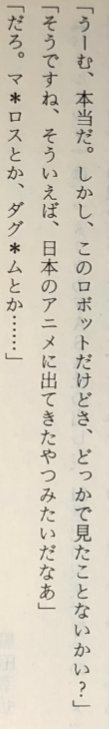 「うーむ、本当だ。しかし、このロボットだけどさ、どっかで見たことないかい?」
「そうですね、そういえば、日本のアニメに出てきたやつみたいだなあ」
「だろ。マ＊ロスとか、ダグ＊ムとか……」